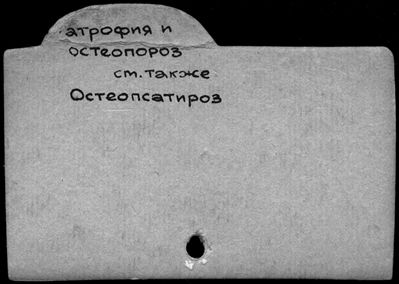 атрофия и
остеопороз
см. также
Остеопсатироз